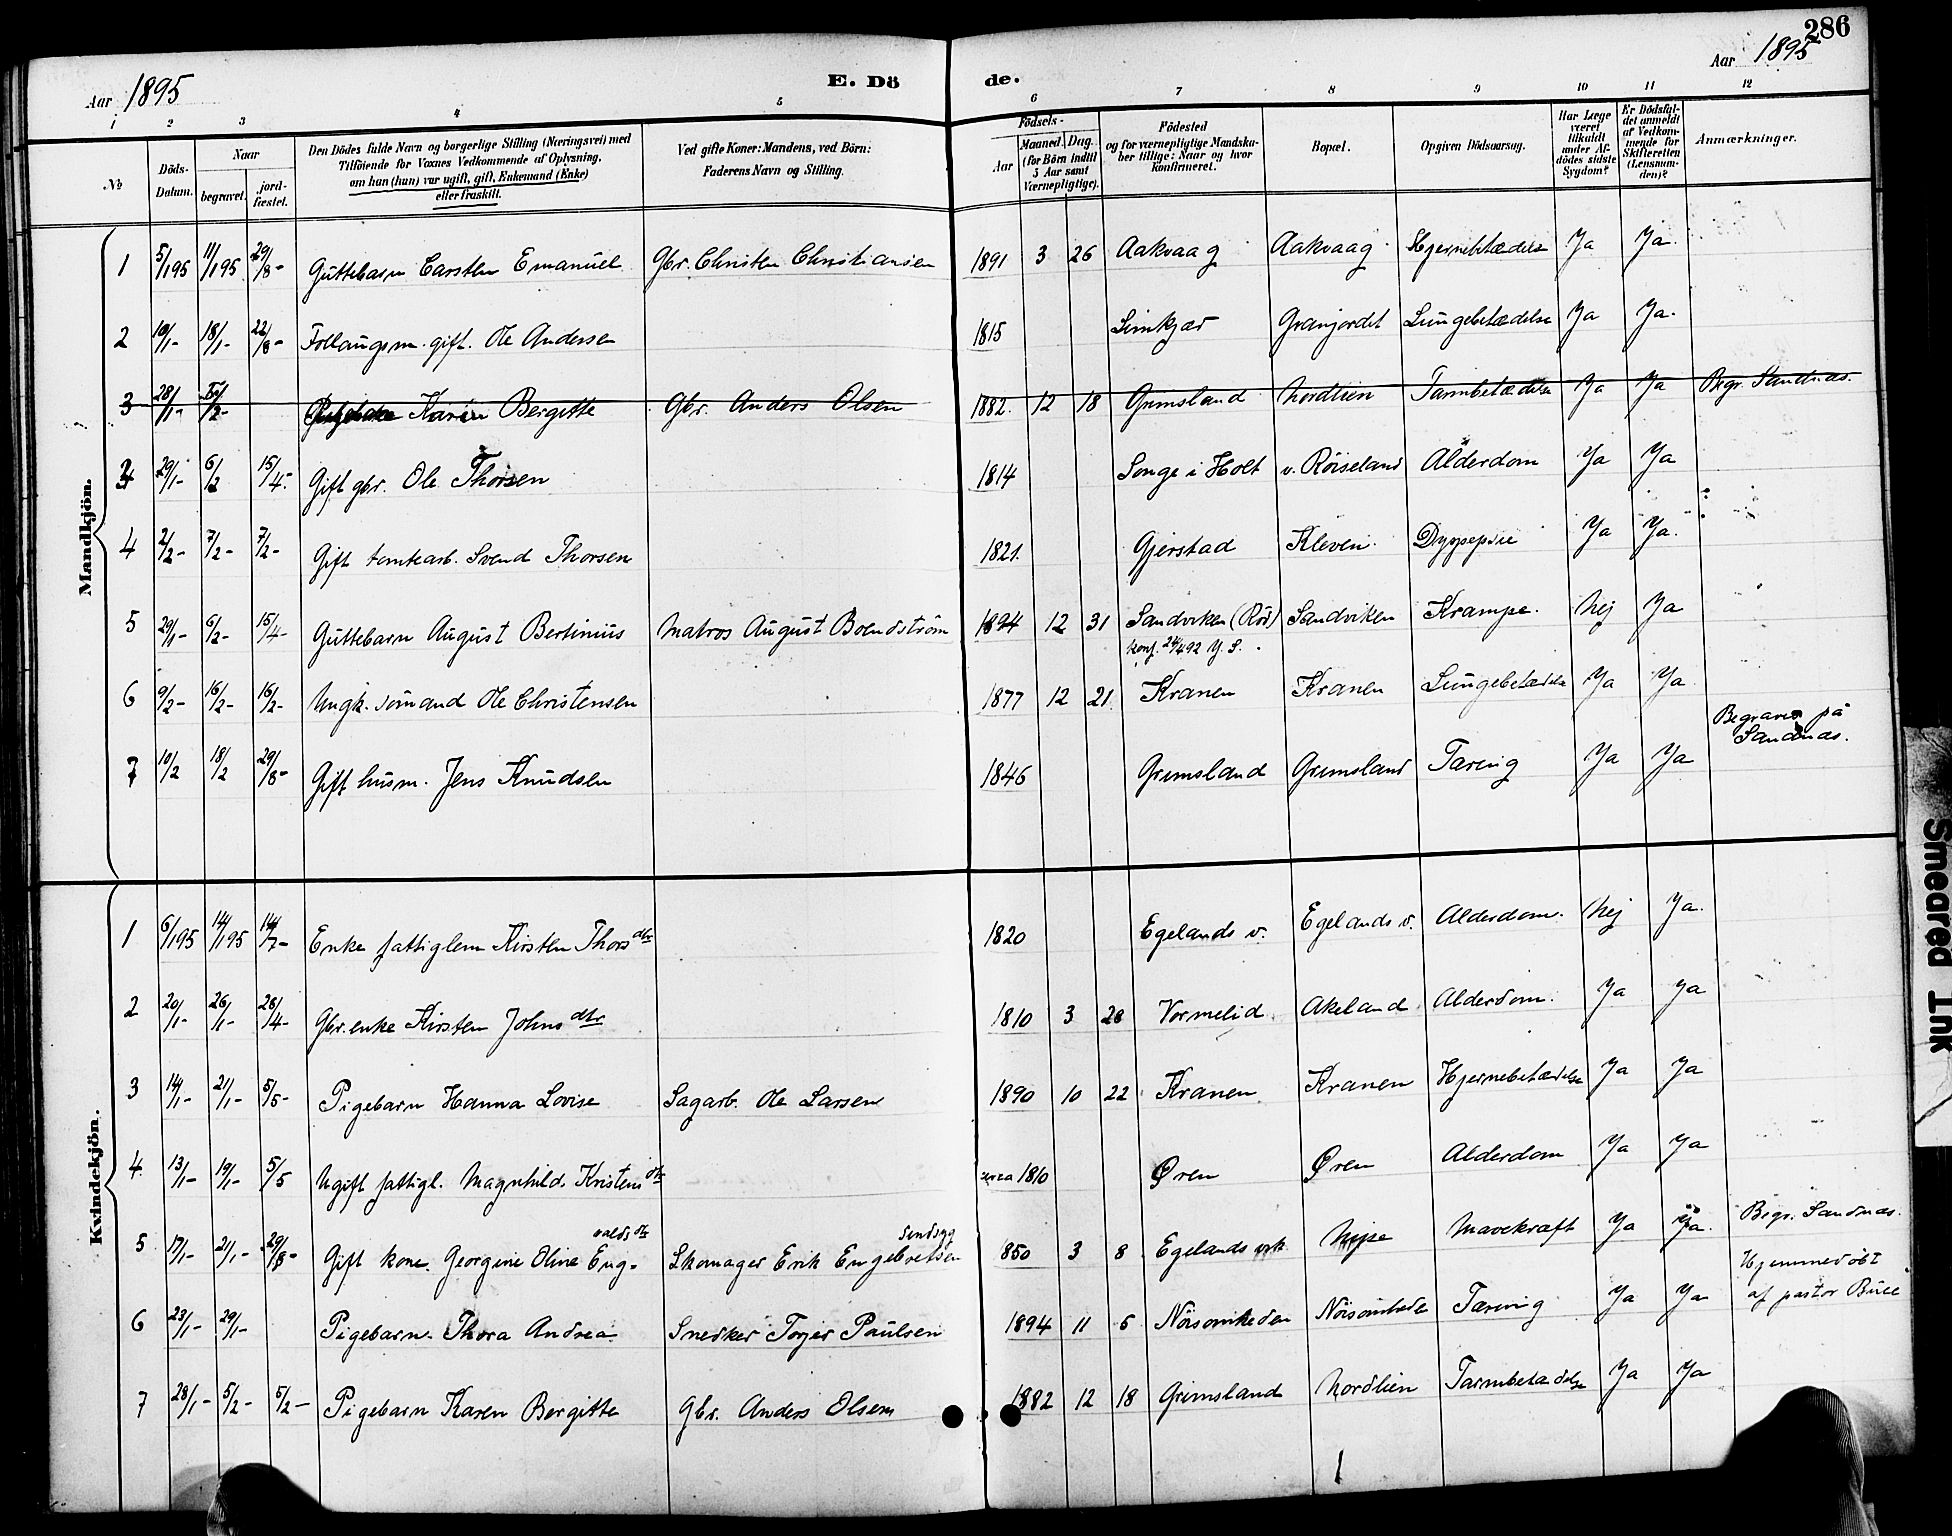 286
Aar 1895 E. Dö de. Aar 1895
1 2 3 4 5 6 7 8 9 10 11 12
No
Döds-Datum.
Naar
begravet.
jord-fæstet.
Den Dödes fulde Navn og borgerlige Stilling (Næringsvei) med
Tilföiende for Voxnes Vedkommende af Oplysning,
om han (hun) var ugift, gift, Enkemand (Enke)
eller fraskilt.
Ved gifte Koner: Mandens, ved Börn:
Faderens Navn og Stilling.
Födsels-
Aar
Maaned. Dag.
(for Börn indtil
5 Aar samt
Værnepligtige).
Födested
og for værnepligtige Mandska-
ber tillige: Naar og hvor
konfirmeret.
Bopæl.
Opgiven Dödsaarsag.
Har Læge
været
tilkaldt
under Af-
dödes sidste
Sygdom?
Er Dödsfal-
det anmeldt
af Vedkom-
mende for
Skifteretten
(Lensman-
den)?
Anmærkninger.
Mandkjön.
1 5/1 95 11/1 95 29/8- Guttebarn Carsten Emanuel Gbr. Christen Christiansen 1891 3 26 Aakvaag Aakvaag Hjernebetædelse Ja Ja.
2 10/1- 18/1- 22/8- Follaugsm. gift. Ole Andersen 1815 Limkjær Granjordet Lungebetædelse Ja Ja.
3 28/1- 5/2- Pigebarn Karen Bergitte Gbr. Anders Olsen 1882. 12 18 Grimsland Nordlien Tarmbetædelse Ja Ja Begr. Sandnæs.
3 29/1- 6/2 15/4- Gift gbr. Ole Thorsen 1814 Songe i Holt v. Röiseland Alderdom Ja Ja
4 2/2- 7/2- 7/2- Gift tomtearb. Svend Thorsen 1821. Gjerstad Kleven. Dyspepsie Ja Ja.
5 29/1- 6/2- 15/4- Guttebarn August Bertinius Matros August Boendström 1894 12 31 Sandviken (Röd) Sandviken Krampe. Nej Ja
konf. 24/4 92 Y. S.
6 9/2- 16/2- 16/2- Ungk. sömand Ole Christensen 1877 12 21 Kranen Kranen Lungebetædelse Ja Ja
7 10/2 18/2 29/8- Gift husm. Jens Knudsen 1846 Grimsland Grimsland Tæring Ja Ja Begraven på
Sandnæs.
Kvindekjön.
1 6/1 95 14/1 95 14/7- Enke fattiglem Kirsten Thorsdtr 1820 Egelands v. Egelands v. Alderdom. Nej Ja.
2 20/1- 26/1- 28/4- Gbr. enke Kirsten Johnsdtr 1810 3 28 Vormelid Akeland Alderdom. Ja Ja
3 14/1- 21/1- 5/5- Pigebarn Hanna Lovise Sagarb. Ole Larsen 1890 10 22 Kranen Kranen Hjernebetædelse Ja Ja
4 13/1- 19/1- 5/5 Ugift fattigl. Magnhild Kristensdtr circa 1810 Øren Øren Alderdom Ja Ja
5 17/1- 21/1- 29/8- Gift kone. Georgine Oline Eng-valdsdtr Skomager Erik Engebretsen 1850 3 8 Egelands vrk Mavekræft Ja Ja. Begr. Sandnæs.
6 23/1- 29/1- Pigebarn Thora Andrea Snedker Torjer Paulsen 1894 11 5 Nöisomheden Nöisomhede Tæring Ja Ja Hjemmedöbt
af pastor Buce
7 28/1- 5/2- 5/2- Pigebarn Karen Bergitte Gbr. Anders Olsen 1882 12 18 Grimsland Nordlien Tarmbetædelse Ja Ja
Smeared Ink